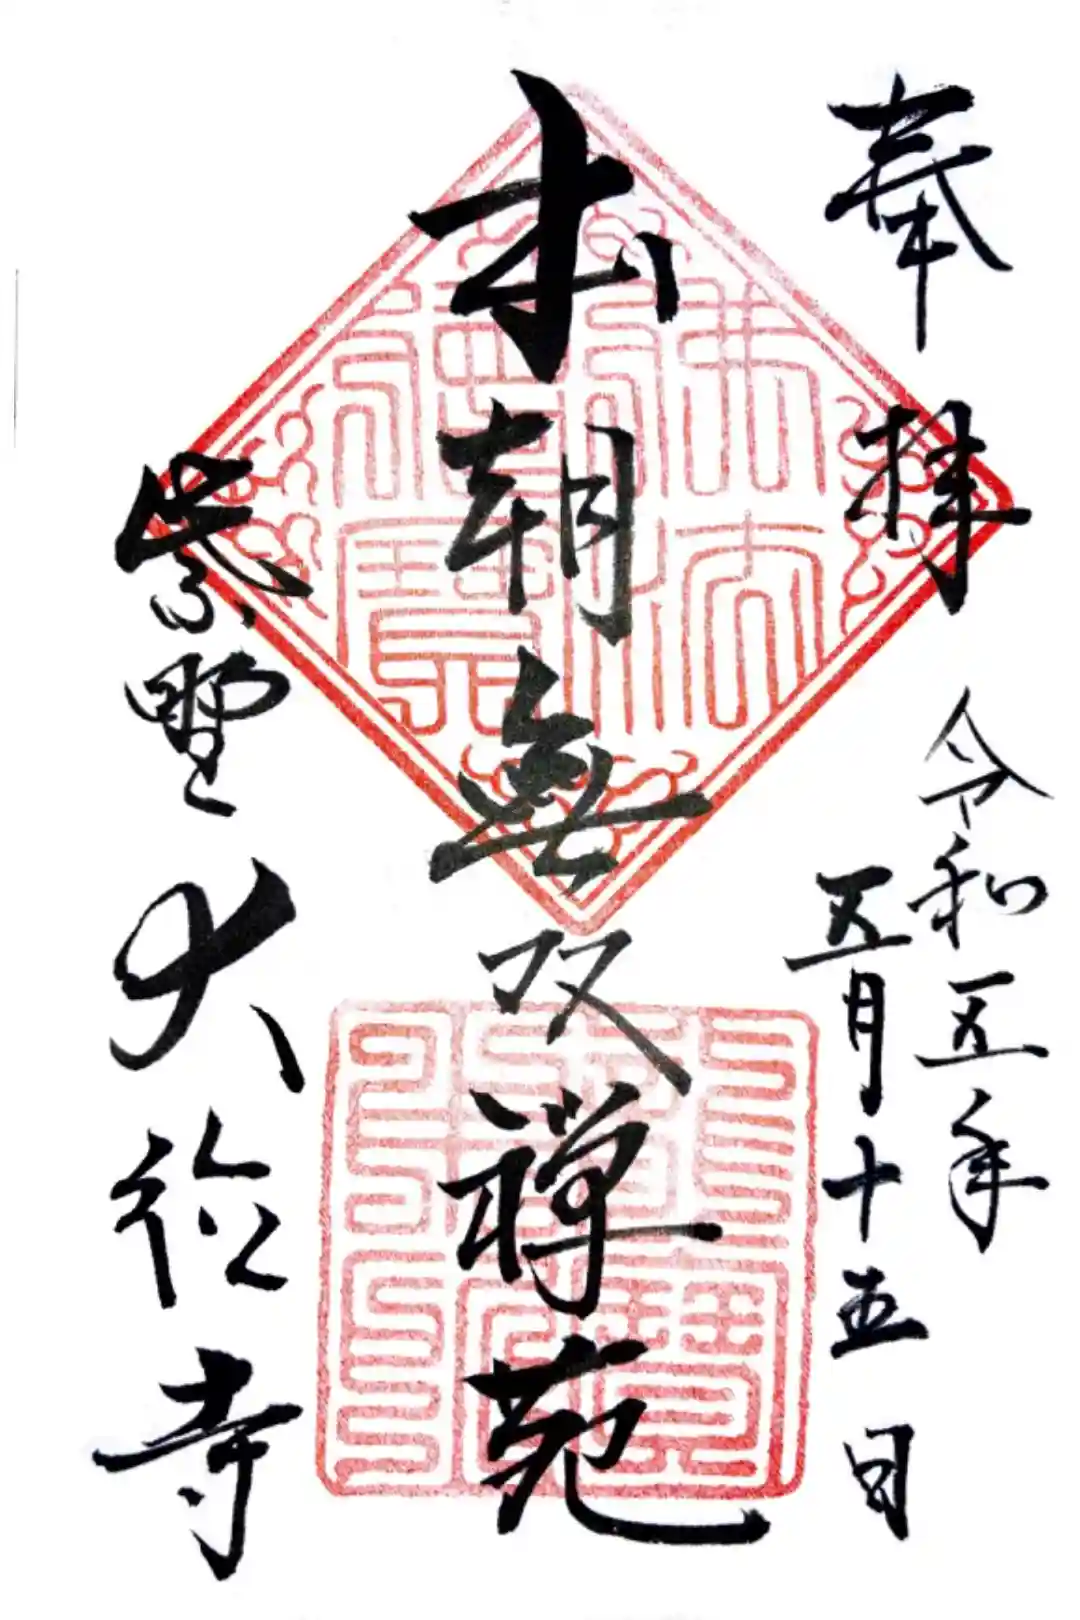 奉拝
令和五年
五月十五日
本朝無双禅苑
紫野大徳寺
佛法僧寳